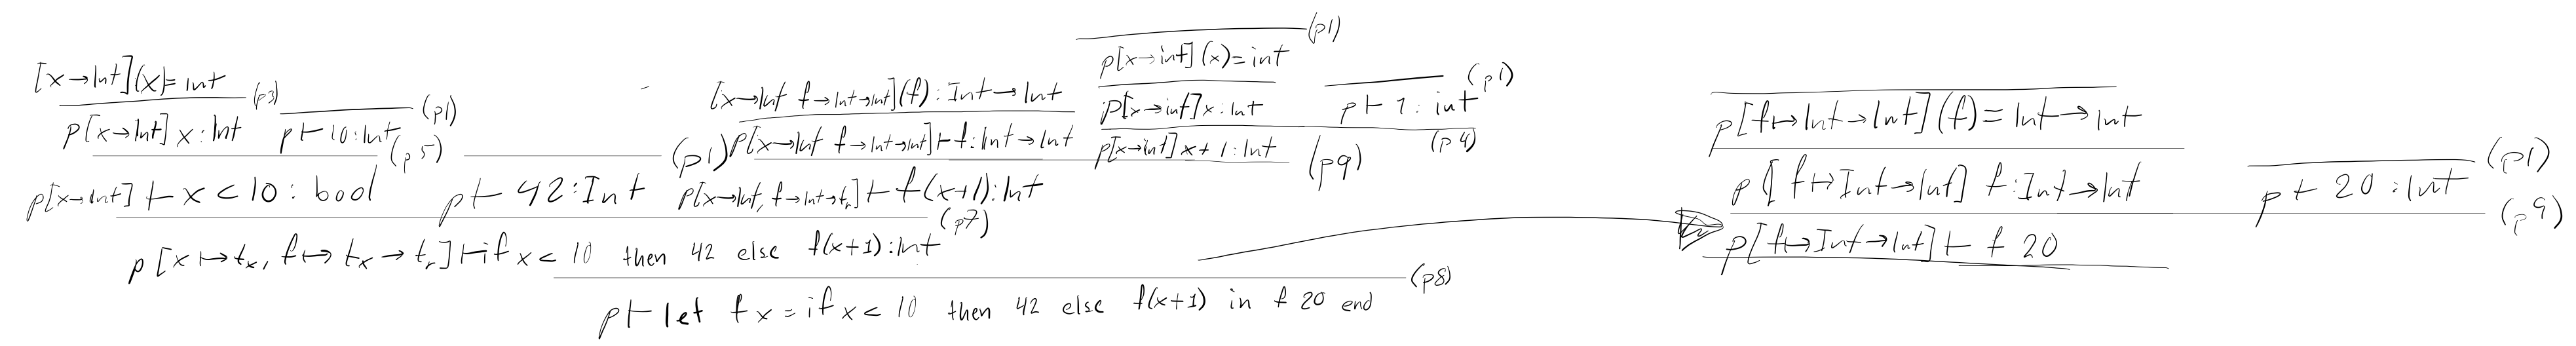 [x→Int](x)=Int
p[x→Int] x:Int (p3)
p⊢10:Int (p1)
(p5)
p[x→Int] ⊢ x<10: bool
p⊢42:Int (p1)
[x→Int f→Int→Int](f):Int→Int
p[x→Int f→Int→Int]⊢f:Int→Int
(p1)
p[x→int](x)=int
p[x→int]x:Int
p[x→int] x+1:Int
p⊢1:int (p1)
(p4)
(p9)
p[x→Int, f→Int→tr]⊢f(x+1):Int
p[x↦tx, f↦tx→tr]⊢if x<10 then 42 else f(x+1):Int
(p7)
p⊢let f x = if x<10 then 42 else f(x+1) in f 20 end
(p8)
p[f↦Int→Int](f)=Int→Int
p[f↦Int→Int] f:Int→Int
p⊢20:Int (p1)
(p9)
p[f↦Int→Int]⊢ f 20